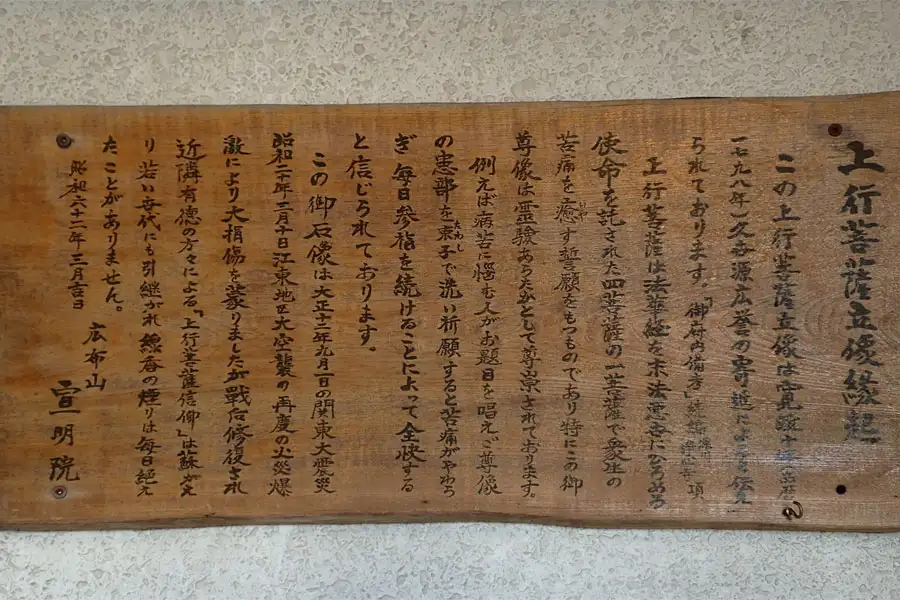 上行菩薩立像縁起
この上行菩薩立像は寛政十
一七九八年)久
源広誉の寄進によると伝え
られております。「御府内備考」続編 項
上行菩薩は法華経を末法悪世にひろめる
使命を託された四菩薩の一菩薩で衆生の
苦痛を癒す誓願をもつものであり特にこの御
尊像は霊験あらたかとして尊崇されております。
例えば病苦に悩む人がお題目を唱えご尊像
の患部を束子で洗い祈願すると苦痛がやわら
ぎ毎日参詣を続けることによって全快する
と信じられております。
この御石像は大正十二年九月一日の関東大震災
昭和二十年三月十日江東地区大空襲の再度の火災爆
激により大損傷を蒙りましたが戦后修復され
近隣有徳の方々による「上行菩薩信仰」は蘇がえ
り若い世代にも引継がれ線香の煙りは毎日絶え
たことがありません。
昭和六十二年三月吉日
広布山
宣明院